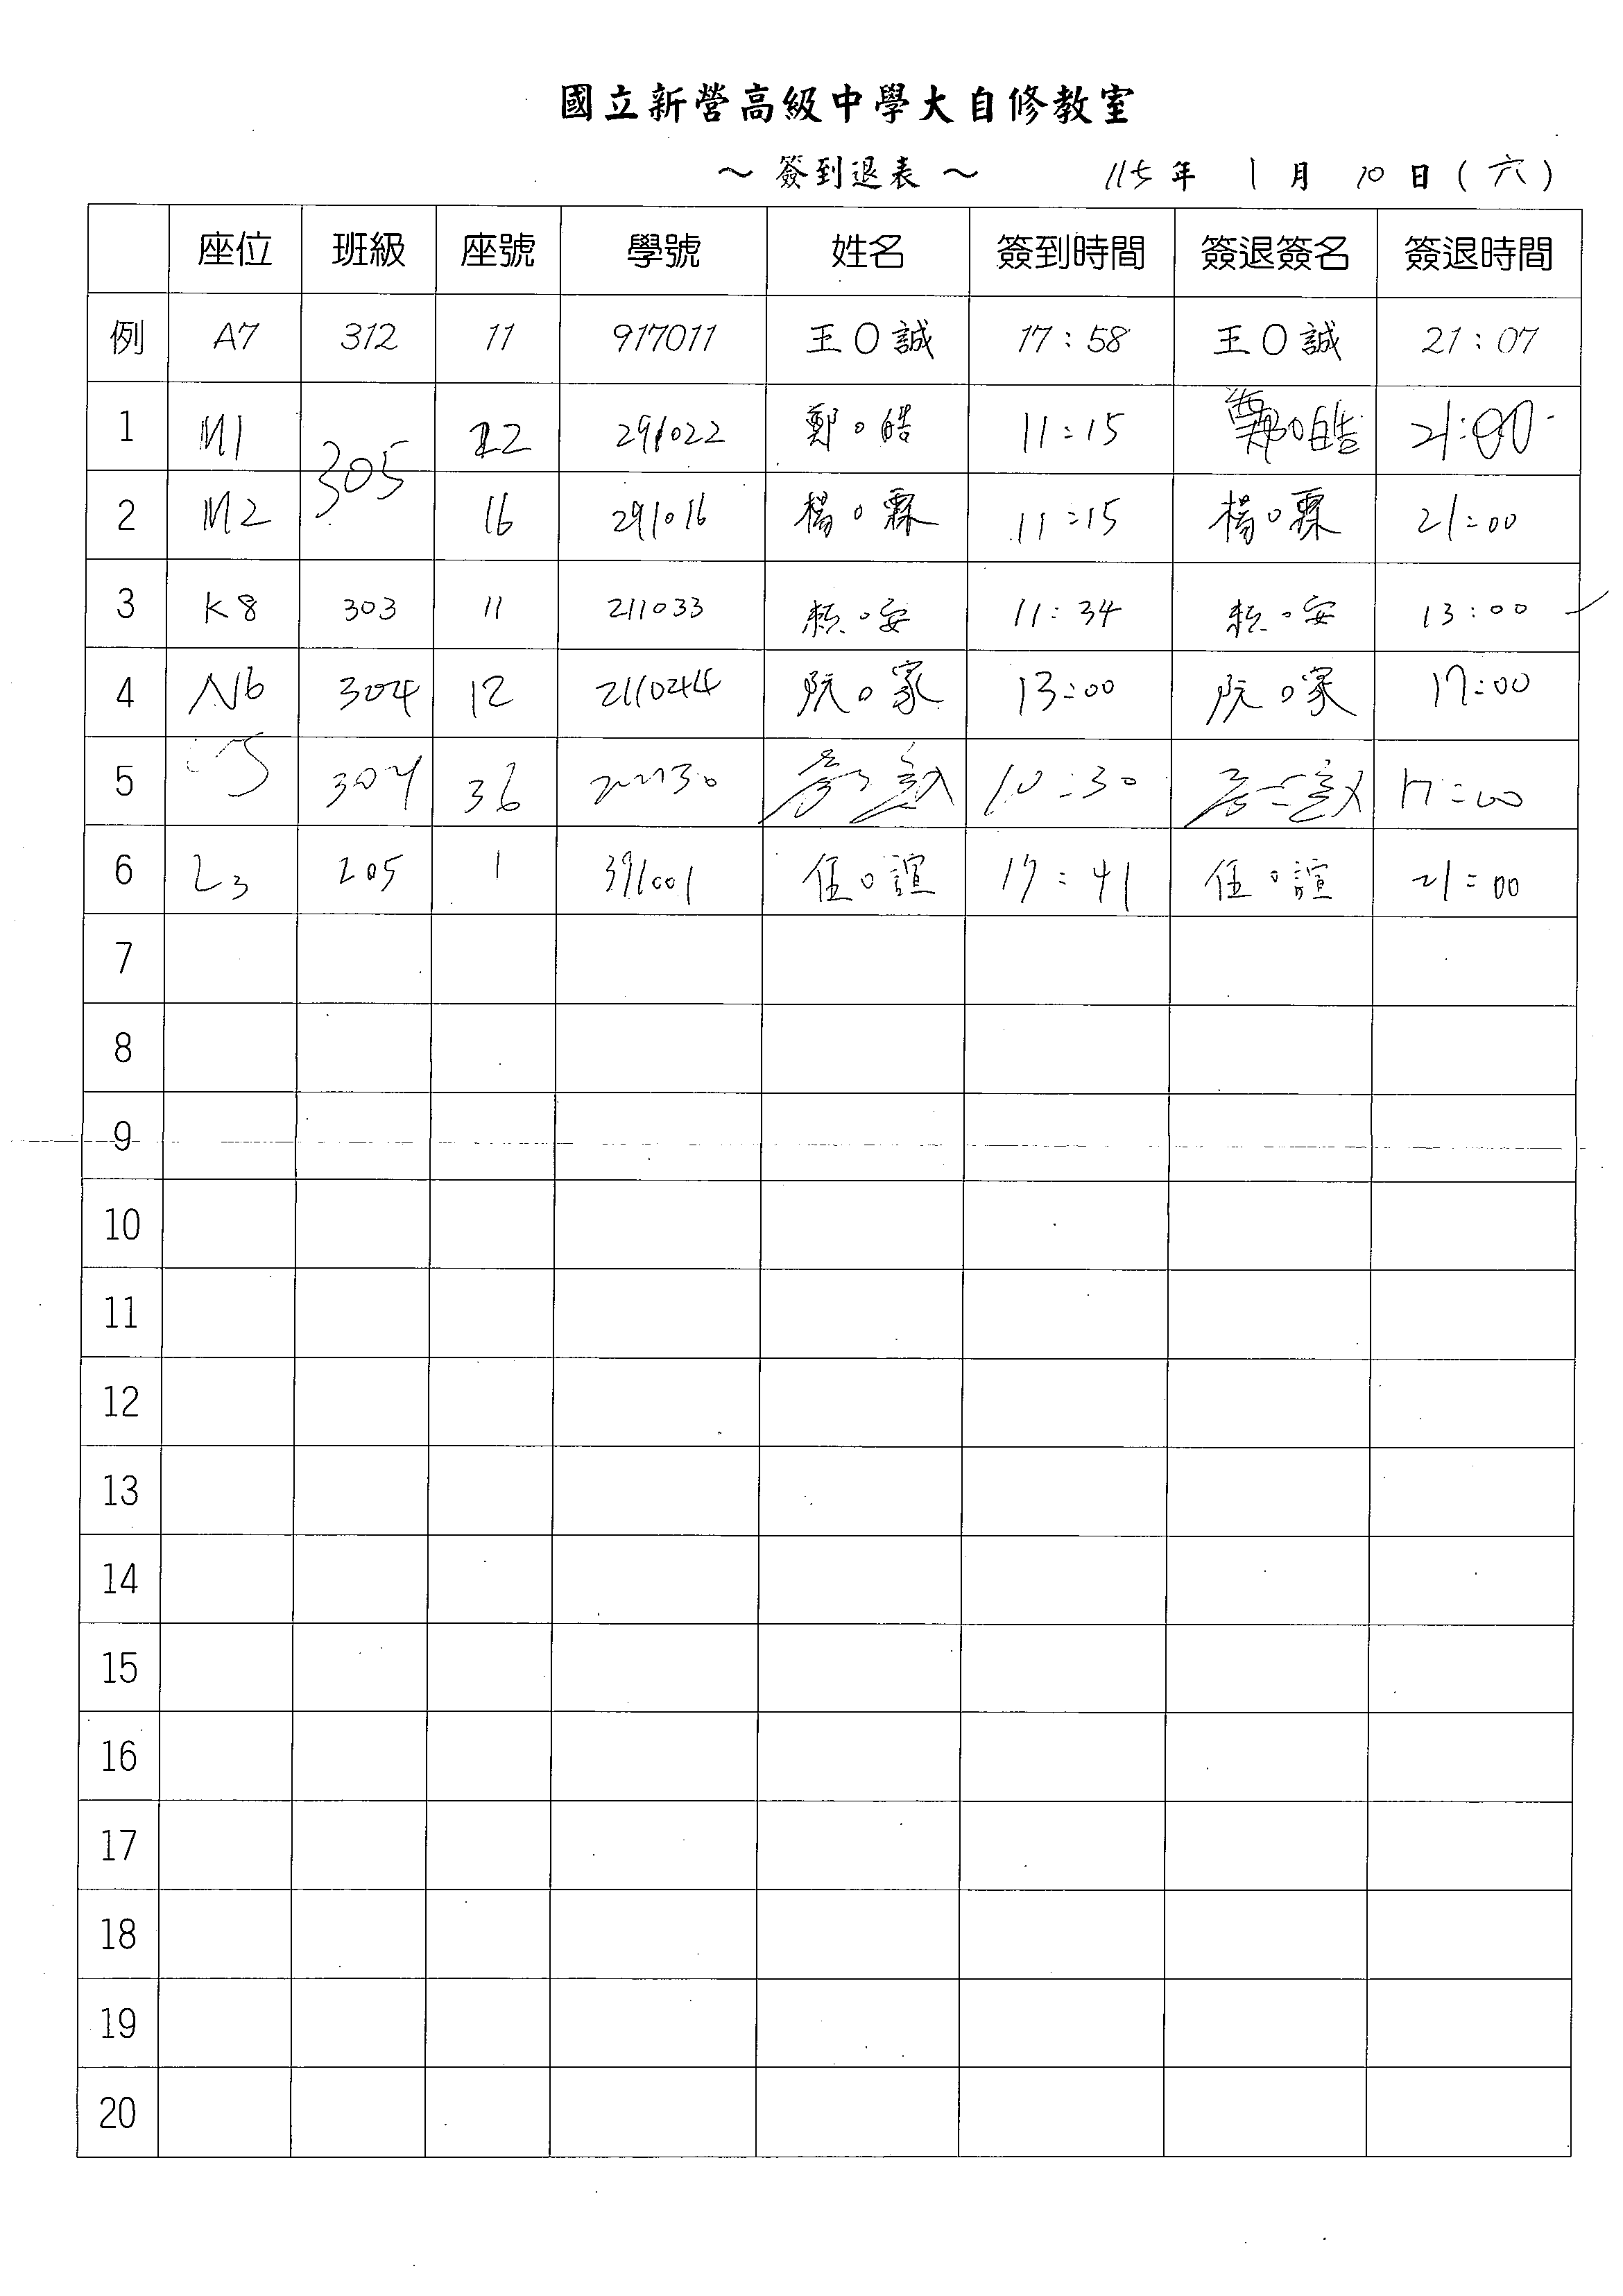 國立新營高級中學大自修教室
～ 簽到退表 ～ 115 年 1 月 10 日 ( 六 )
座位 班級 座號 學號 姓名 簽到時間 簽退簽名 簽退時間
例 A7 312 11 917011 王O誠 17:58 王O誠 21:07
1 M1 305 22 291022 鄭O皓 11:15 鄭O皓 21:00
2 M2 16 291016 楊O霖 11:15 楊O霖 21:00
3 K8 303 11 211033 賴O安 11:34 賴O安 13:00
4 N6 304 12 211044 阮O家 13:00 阮O家 17:00
5 304 36 10:30 17:00
6 L3 205 1 391001 任O誼 17:41 任O誼 21:00
7
8
9
10
11
12
13
14
15
16
17
18
19
20